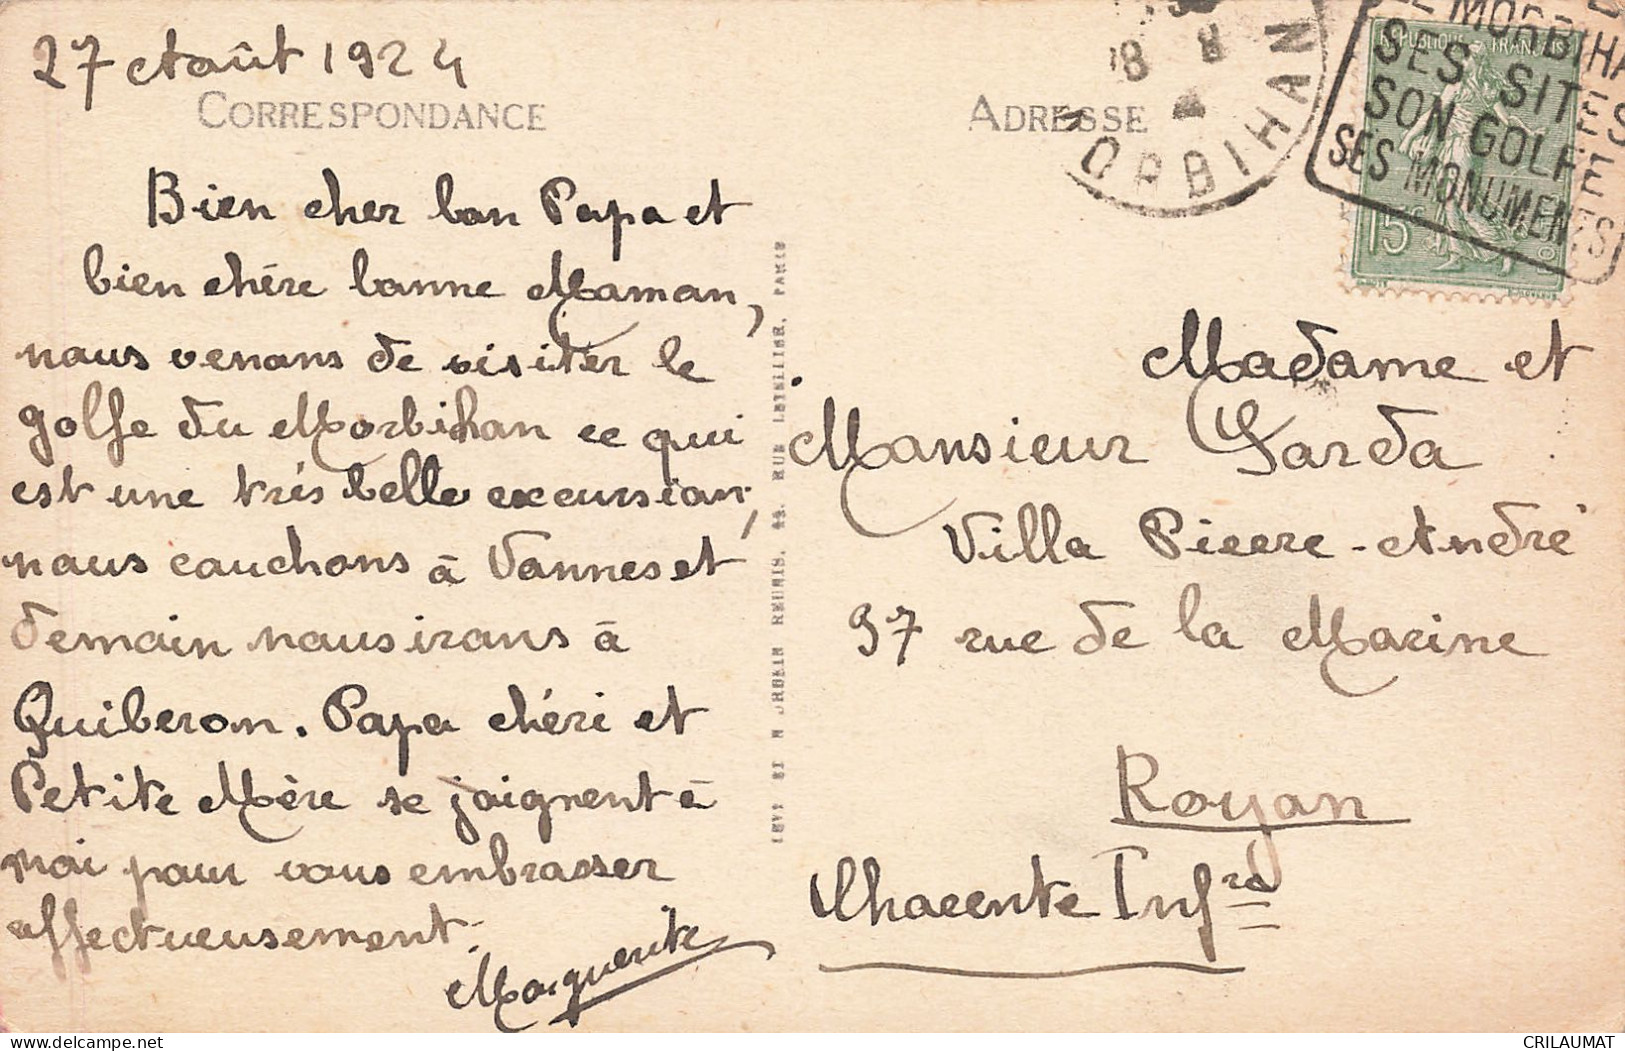 27 Août 1924
CORRESPONDANCE
Bien cher bon Papa et
bien chère bonne Maman,
nous venons de visiter le
golfe du Morbihan ce qui
est une très belle excursion,
nous couchons à Vannes et
demain nous irons à
Quiberon. Papa chéri et
Petite Mère se joignent à
moi pour vous embrasser
affectueusement.
Marguerite
LEVY ET NEURDEIN REUNIS, 44, RUE LETELLIER, PARIS
ADRESSE
MORBIHAN
LE MORBIHAN
SES SITES
SON GOLFE
SES MONUMENTS
REPUBLIQUE FRANÇAISE
15c
Madame et
Monsieur Garda
Villa Pierre-André
97 rue de la Marine
Royan
Charente Infre
CRILAUMAT